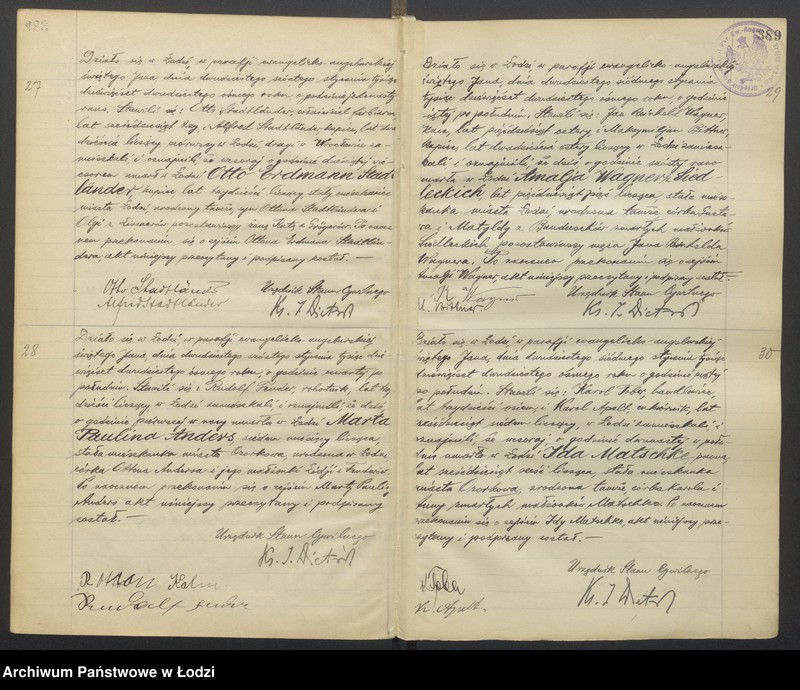 388
27
Działo się w Łodzi, w parafji ewangelicko-augsburskiej
świętego Jana, dnia dwudziestego szóstego stycznia tysiąc
dziewięćset dwudziestego ósmego roku, o godzinie jedenastej
rano. Stawili się: Otto Stadtländer, właściciel farbiarni,
lat sześćdziesiąt trzy, i Alfred Stadtländer, kupiec, lat dwa-
dzieścia liczący, pierwszy w Łodzi, drugi w Wrocławiu za-
mieszkali i oznajmili, że wczoraj o godzinie dziewiątej wie-
czorem umarł w Łodzi Otto Erdmann Stadt-
länder, kupiec, lat trzydzieści liczący, stały mieszkaniec
miasta Łodzi, urodzony tamże, syn Ottona Stadtländera i
Olgi z pozostawiwszy żonę Katę z
nem przekonaniu się o zejściu Ottona Erdmana Stadtlän-
dera, akt niniejszy przeczytany i podpisany został. —
Otto Stadtländer
Alfred Stadtländer
Urzędnik Stanu Cywilnego
Ks. J. Dietrich
28
Działo się w Łodzi, w parafji ewangelicko-augsburskiej
świętego Jana, dnia dwudziestego szóstego stycznia tysiąc dzie-
więćset dwudziestego ósmego roku, o godzinie czwartej po
południu. Stawili się: Rudolf Fender, robotnik, lat trzy-
dzieści liczący, w Łodzi zamieszkali, i oznajmili, że dziś,
o godzinie pierwszej w nocy umarła w Łodzi Marta
Paulina Anders, siedem miesięcy licząca,
stała mieszkanka miasta Ozorkowa, urodzona w Łodzi,
córka Ottona Andersa i jego małżonki Lidji z Fenderów.
Po naocznem przekonaniu się o zejściu Marty Pauliny
Anders akt niniejszy przeczytany i podpisany
został. —
Urzędnik Stanu Cywilnego
Ks. J. Dietrich
Rudolf Fender
389
29
Działo się w Łodzi w parafji ewangelicko-augsburskiej
świętego Jana, dnia dwudziestego siódmego stycznia
tysiąc dziewięćset dwudziestego ósmego roku o godzinie
piątej po południu. Stawili się: Jan Reinhold Wagner,
tkacz, lat pięćdziesiąt cztery, i Maksymiljan Bittner,
kupiec, lat dwadzieścia cztery liczący, w Łodzi zamiesz-
kali i oznajmili, że dziś o godzinie szóstej rano
umarła w Łodzi Amalja Wagner z Sied-
leckich, lat pięćdziesiąt pięć licząca, stała miesz-
kanka miasta Łodzi, urodzona tamże, córka Gusta-
wa i Matyldy z zmarłych małżonków
Siedleckich pozostawiwszy męża Jana Reinholda
Wagnera. Po naocznem przekonaniu się o zejściu
Amalji Wagner, akt niniejszy przeczytany i podpisany został. —
R Wagner
M. Bittner
Urzędnik Stanu Cywilnego
Ks. J. Dietrich
30
Działo się w Łodzi w parafji ewangelicko-augsburskiej
świętego Jana, dnia dwudziestego siódmego stycznia tysiąc
dziewięćset dwudziestego ósmego roku, o godzinie piątej
po południu. Stawili się: Karol handlowiec,
lat trzydzieści osiem, i Karol Apelt, lat
sześćdziesiąt siedem liczący, w Łodzi zamieszkali, i
oznajmili, że wczoraj o godzinie dwunastej w połu-
dnie umarła w Łodzi Ida Matschke, panna,
lat sześćdziesiąt sześć licząca, stała mieszkanka
miasta Ozorkowa, urodzona tamże, córka Karola i
Anny zmarłych małżonków Matschke. Po naocznem
przekonaniu się o zejściu Idy Matschke, akt niniejszy prze-
czytany i podpisany został. —
Urzędnik Stanu Cywilnego
Ks. J. Dietrich
K. Apelt.
Archiwum Państwowe w Łodzi